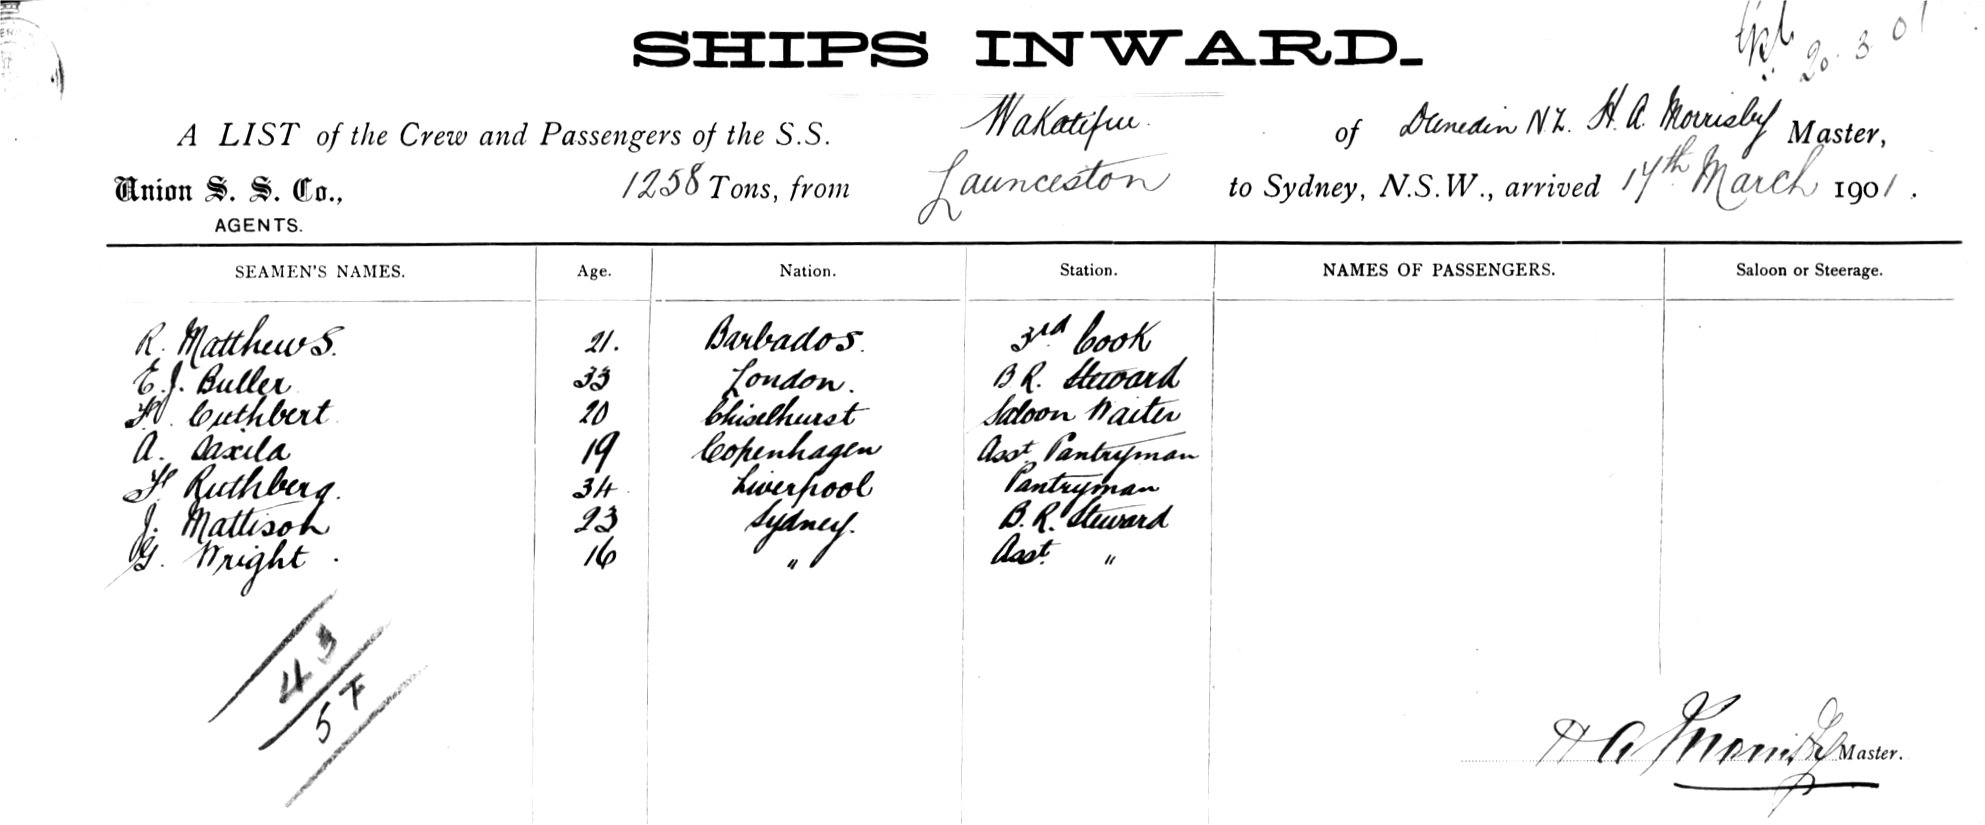 20.3.01
SHIPS INWARD.
A LIST of the Crew and Passengers of the S.S. Wakatipu of Dunedin N.Z. H. A. Morrisby Master,
Union S. S. Co., 1258 Tons, from Launceston to Sydney, N.S.W., arrived 17th March 1901.
AGENTS.
SEAMEN'S NAMES. Age. Nation. Station. NAMES OF PASSENGERS. Saloon or Steerage.
R. Matthews. 21. Barbados. 3rd Cook
E. J. Buller 33 London. B. R. Steward
Cuthbert 20 Chiselhurst Saloon Waiter
A. Saxila 19 Copenhagen Asst. Pantryman
Ruthberg. 34 Liverpool Pantryman
J. Mattison 23 Sydney. B. R. Steward
G. Wright. 16 " Asst. "
43
57
H A Morrisby Master.